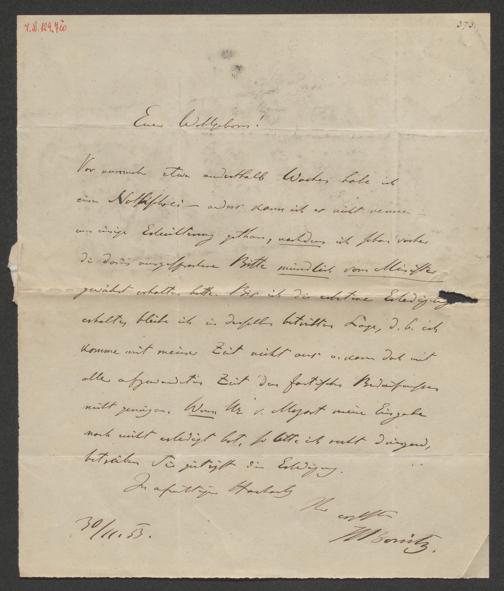 I.N. 129.420
373.
Euer Wohlgeboren!
Vor nunmehr etwa anderthalb Wochen habe ich
einen Nothschrei – anders kann ich es nicht nennen –
um einige Erleichterung gethan, nachdem ich schon vorher
die darin ausgesprochene Bitte mündlich vom Minister
gewährt erhalten hatte. Bis ich die Erledigung
erhalte, bleibe ich in derselben betrübten Lage, d. h. ich
komme mit meiner Zeit nicht aus u. kann doch mit
aller aufgewendeten Zeit den factischen Bedürfnissen
nicht genügen. Wenn Hr. v. Mozart meine Eingabe
noch nicht erledigt hat, so bitte ich recht dringend,
betreiben Sie gütigst die Erledigung.
In aufrichtiger Hochachtung
Ihr ergebenster
HBonitz.
30/11. 53.